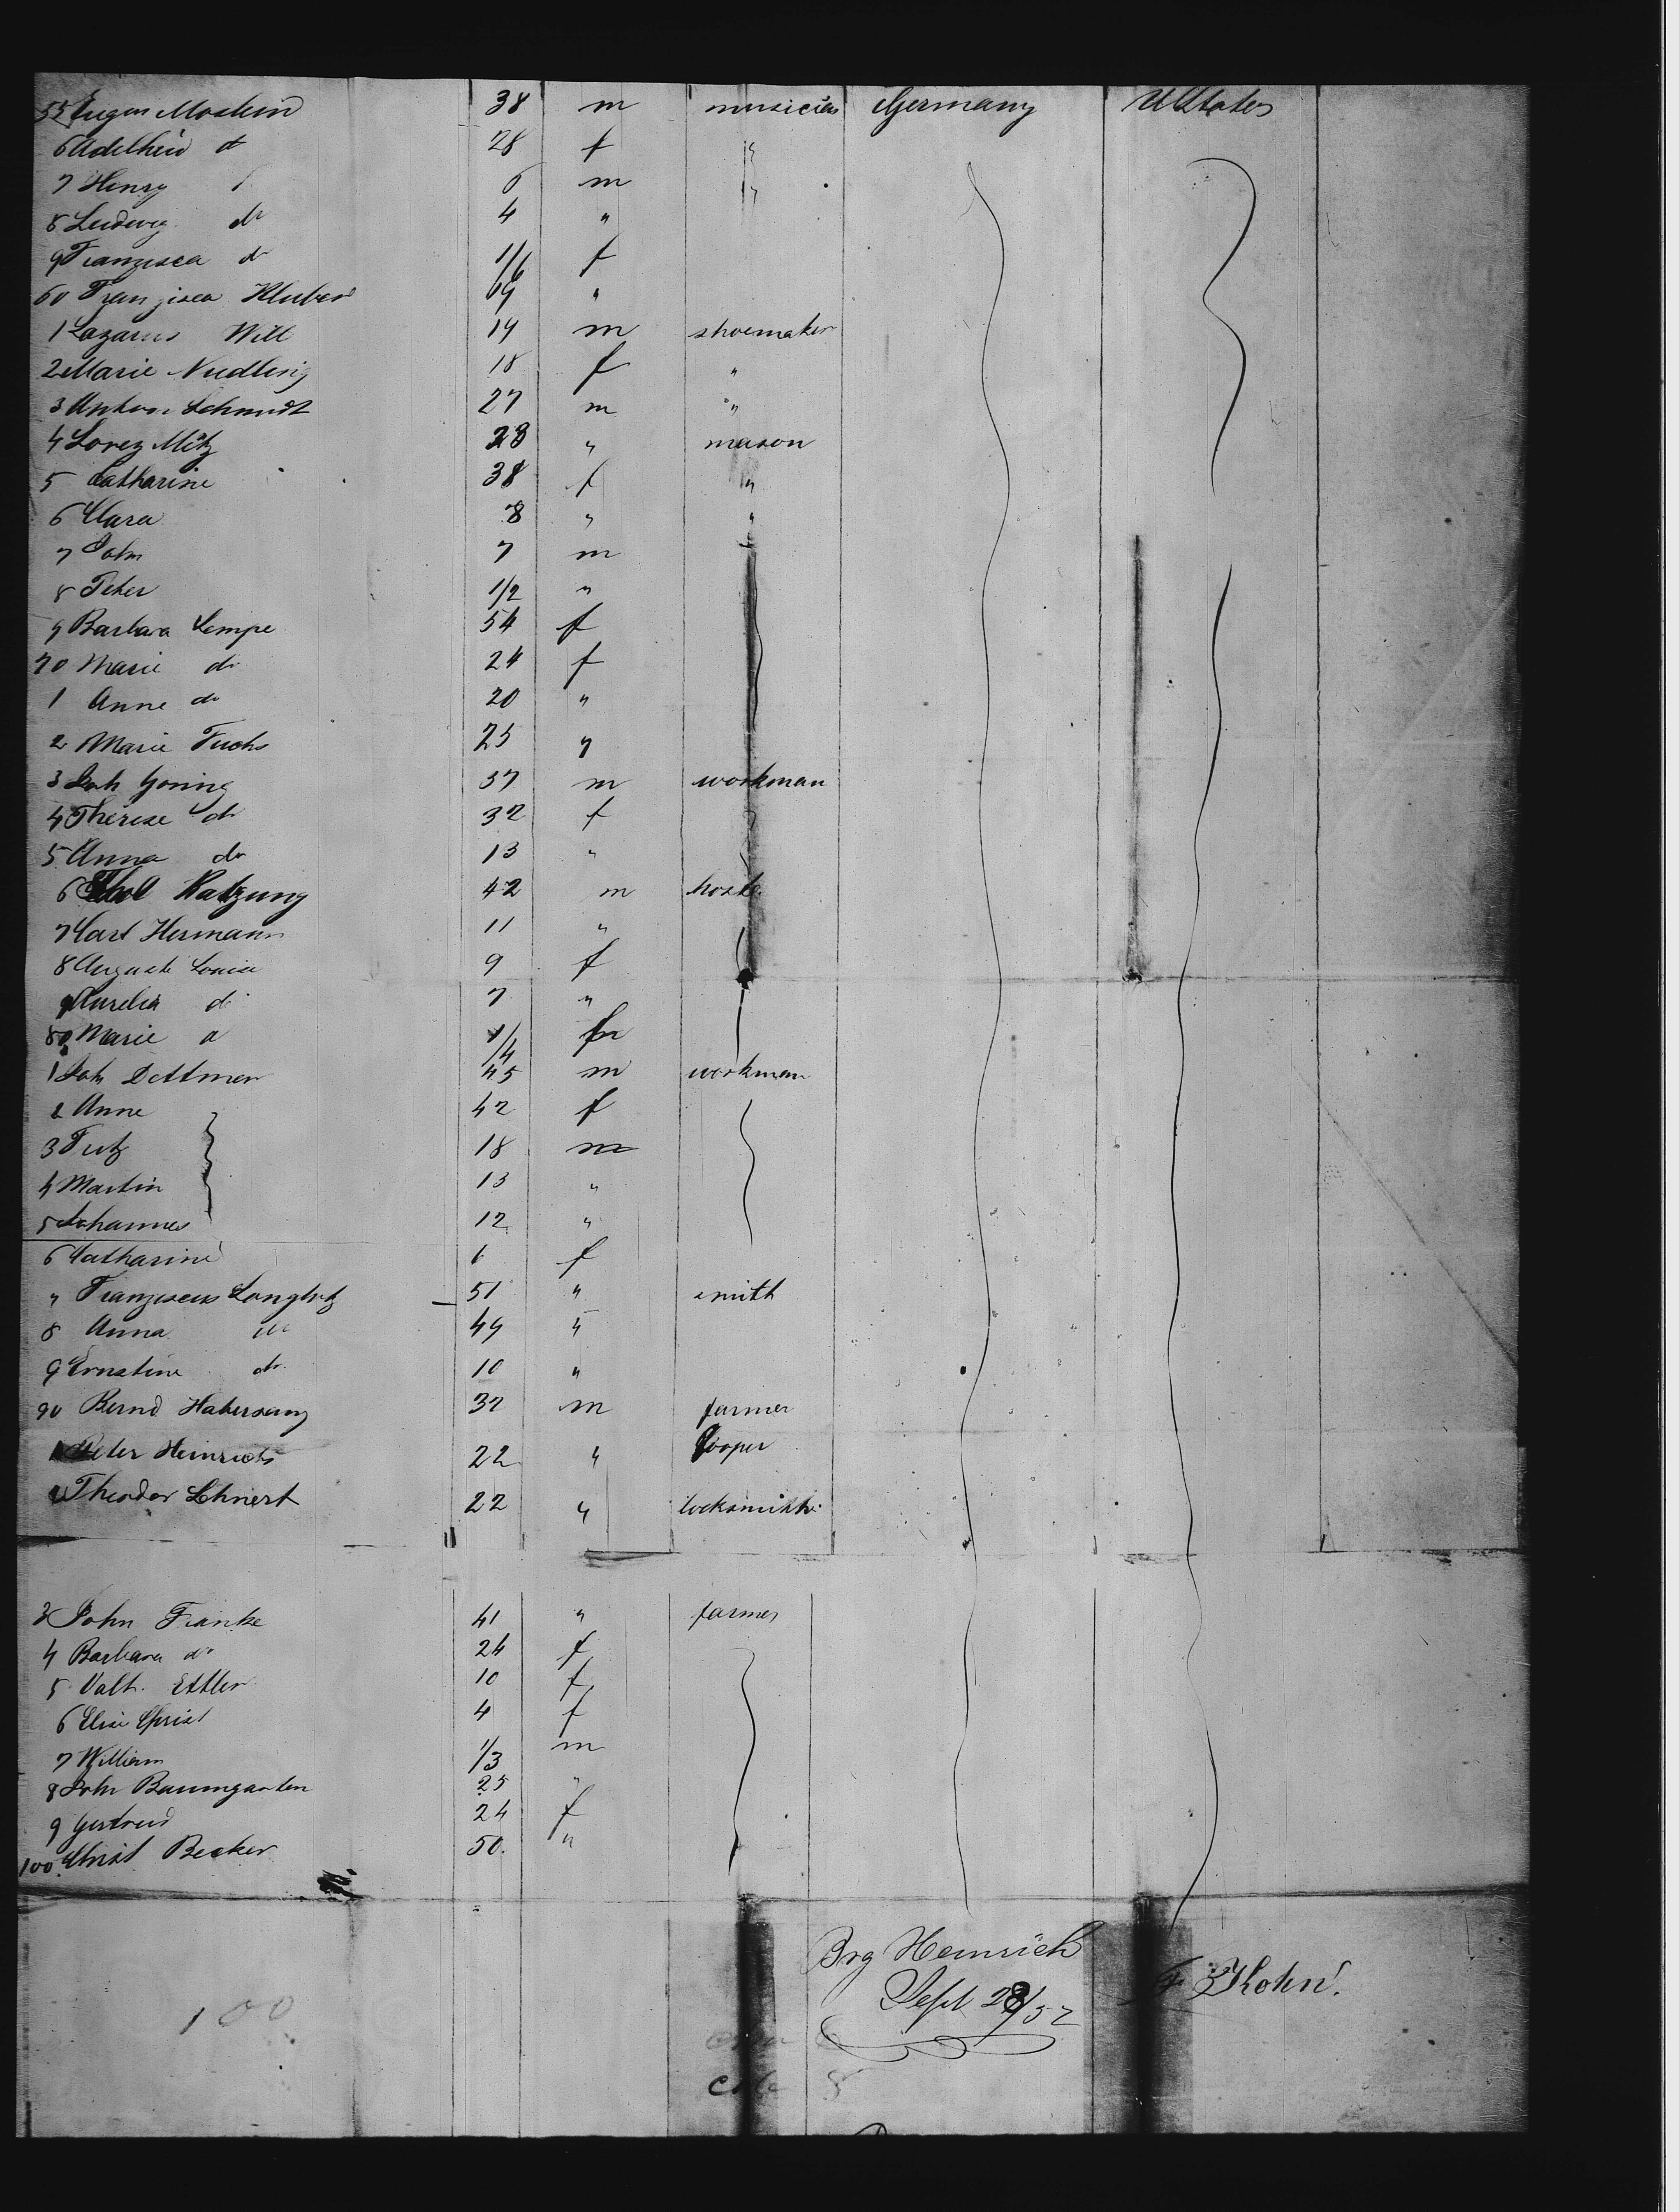 55 Eugen Moslein 38 m musician Germany UStates
6 Adelheid do 28 f "
7 Henry 6 m "
8 Ludwig do 4 "
9 Franzisca do 1/6 f
60 Franzisca Kluber 69 "
1 Lazarus Will 19 m shoemaker
2 Marie Nudling 18 f "
3 Anton Schmidt 27 m "
4 Lorez Mitz 28 " mason
5 Catharine 38 f "
6 Clara 8 " "
7 John 7 m
8 Peter 1/2 "
9 Barbara Lempe 54 f
70 Marie do 24 f
1 Anne do 20 "
2 Marie Fuchs 25 "
3 Joh Goring 37 m workman
4 Therese do 32 f
5 Anna do 13 "
6 Ratzung 42 m
7 Carl Hermann 11 "
8 Auguste Louise 9 f
9 Aurelia do 7 "
80 Marie d 1/4
1 Joh Dettmer 45 m workman
2 Anne 42 f
3 18 m
4 Martin 13 "
5 Johannes 12 "
6 Catharine 6 f
" Franziscus 51 " smith
8 Anna do 49 "
9 Ernstine do 10 "
90 Bernd Habersang 32 m farmer
1 Peter Heinrichs 22 " Cooper
2 Theodor Lehnert 22 " locksmith
3 John Franke 41 " farmer
4 Barbara do 24 f
5 Valt. Ettler 10 f
6 Elise Christ 4 f
7 William 1/3 m
8 John Baumgarten 25 "
9 Gertrud 24 f
100 Christ Becker 50. "
Brg Heinrich
Sept 28/52
F Kohn.
100